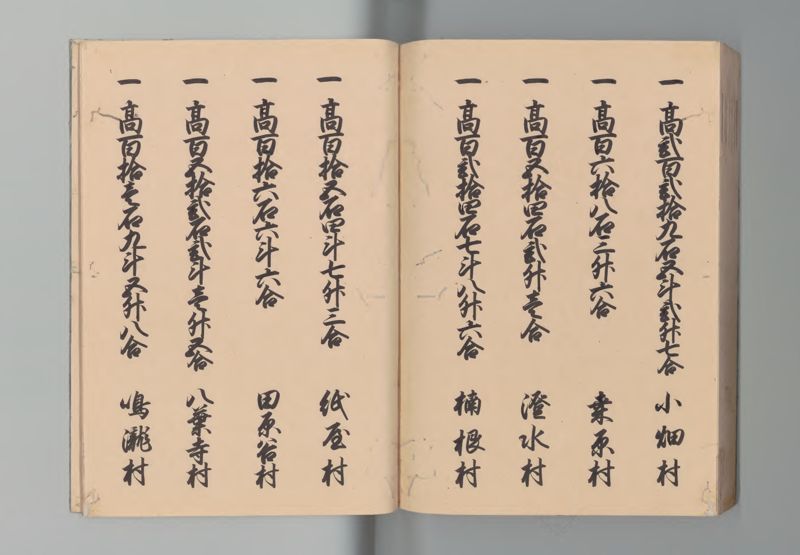 一 高弐百弐拾九石五斗弐升七合 小畑村
一 高百六拾八石三升六合 桑原村
一 高百五拾四石弐升壱合 澄水村
一 高百弐拾四石七斗八升六合 楠根村
一 高百拾五石四斗七升三合 紙屋村
一 高百拾六石六斗六合 田原谷村
一 高百五拾弐石弐斗壱升五合 八葉寺村
一 高百拾壱石九斗五升八合 鳴瀧村